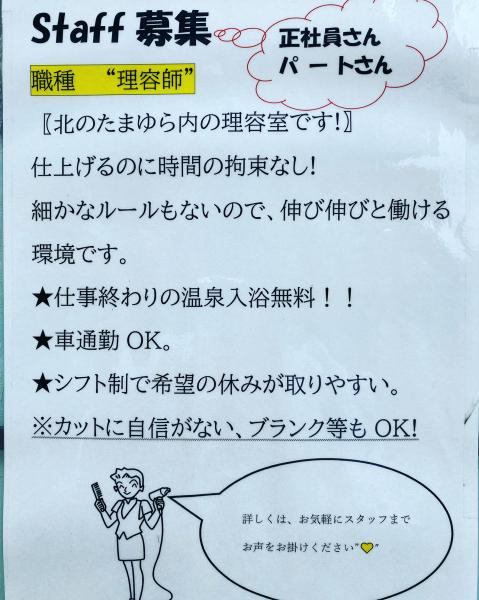 Staff 募集
正社員さん
パートさん
職種 “理容師”
〖北のたまゆら内の理容室です!〗
仕上げるのに時間の拘束なし!
細かなルールもないので、伸び伸びと働ける
環境です。
★仕事終わりの温泉入浴無料！！
★車通勤 OK。
★シフト制で希望の休みが取りやすい。
※カットに自信がない、ブランク等も OK!
詳しくは、お気軽にスタッフまで
お声をお掛けください”💛”